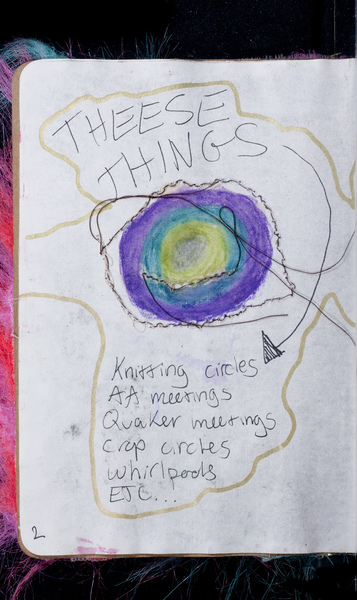 THEESE
THINGS
Knitting circles
AA meetings
Quaker meetings
Crop circles
Whirlpools
ETC...
2